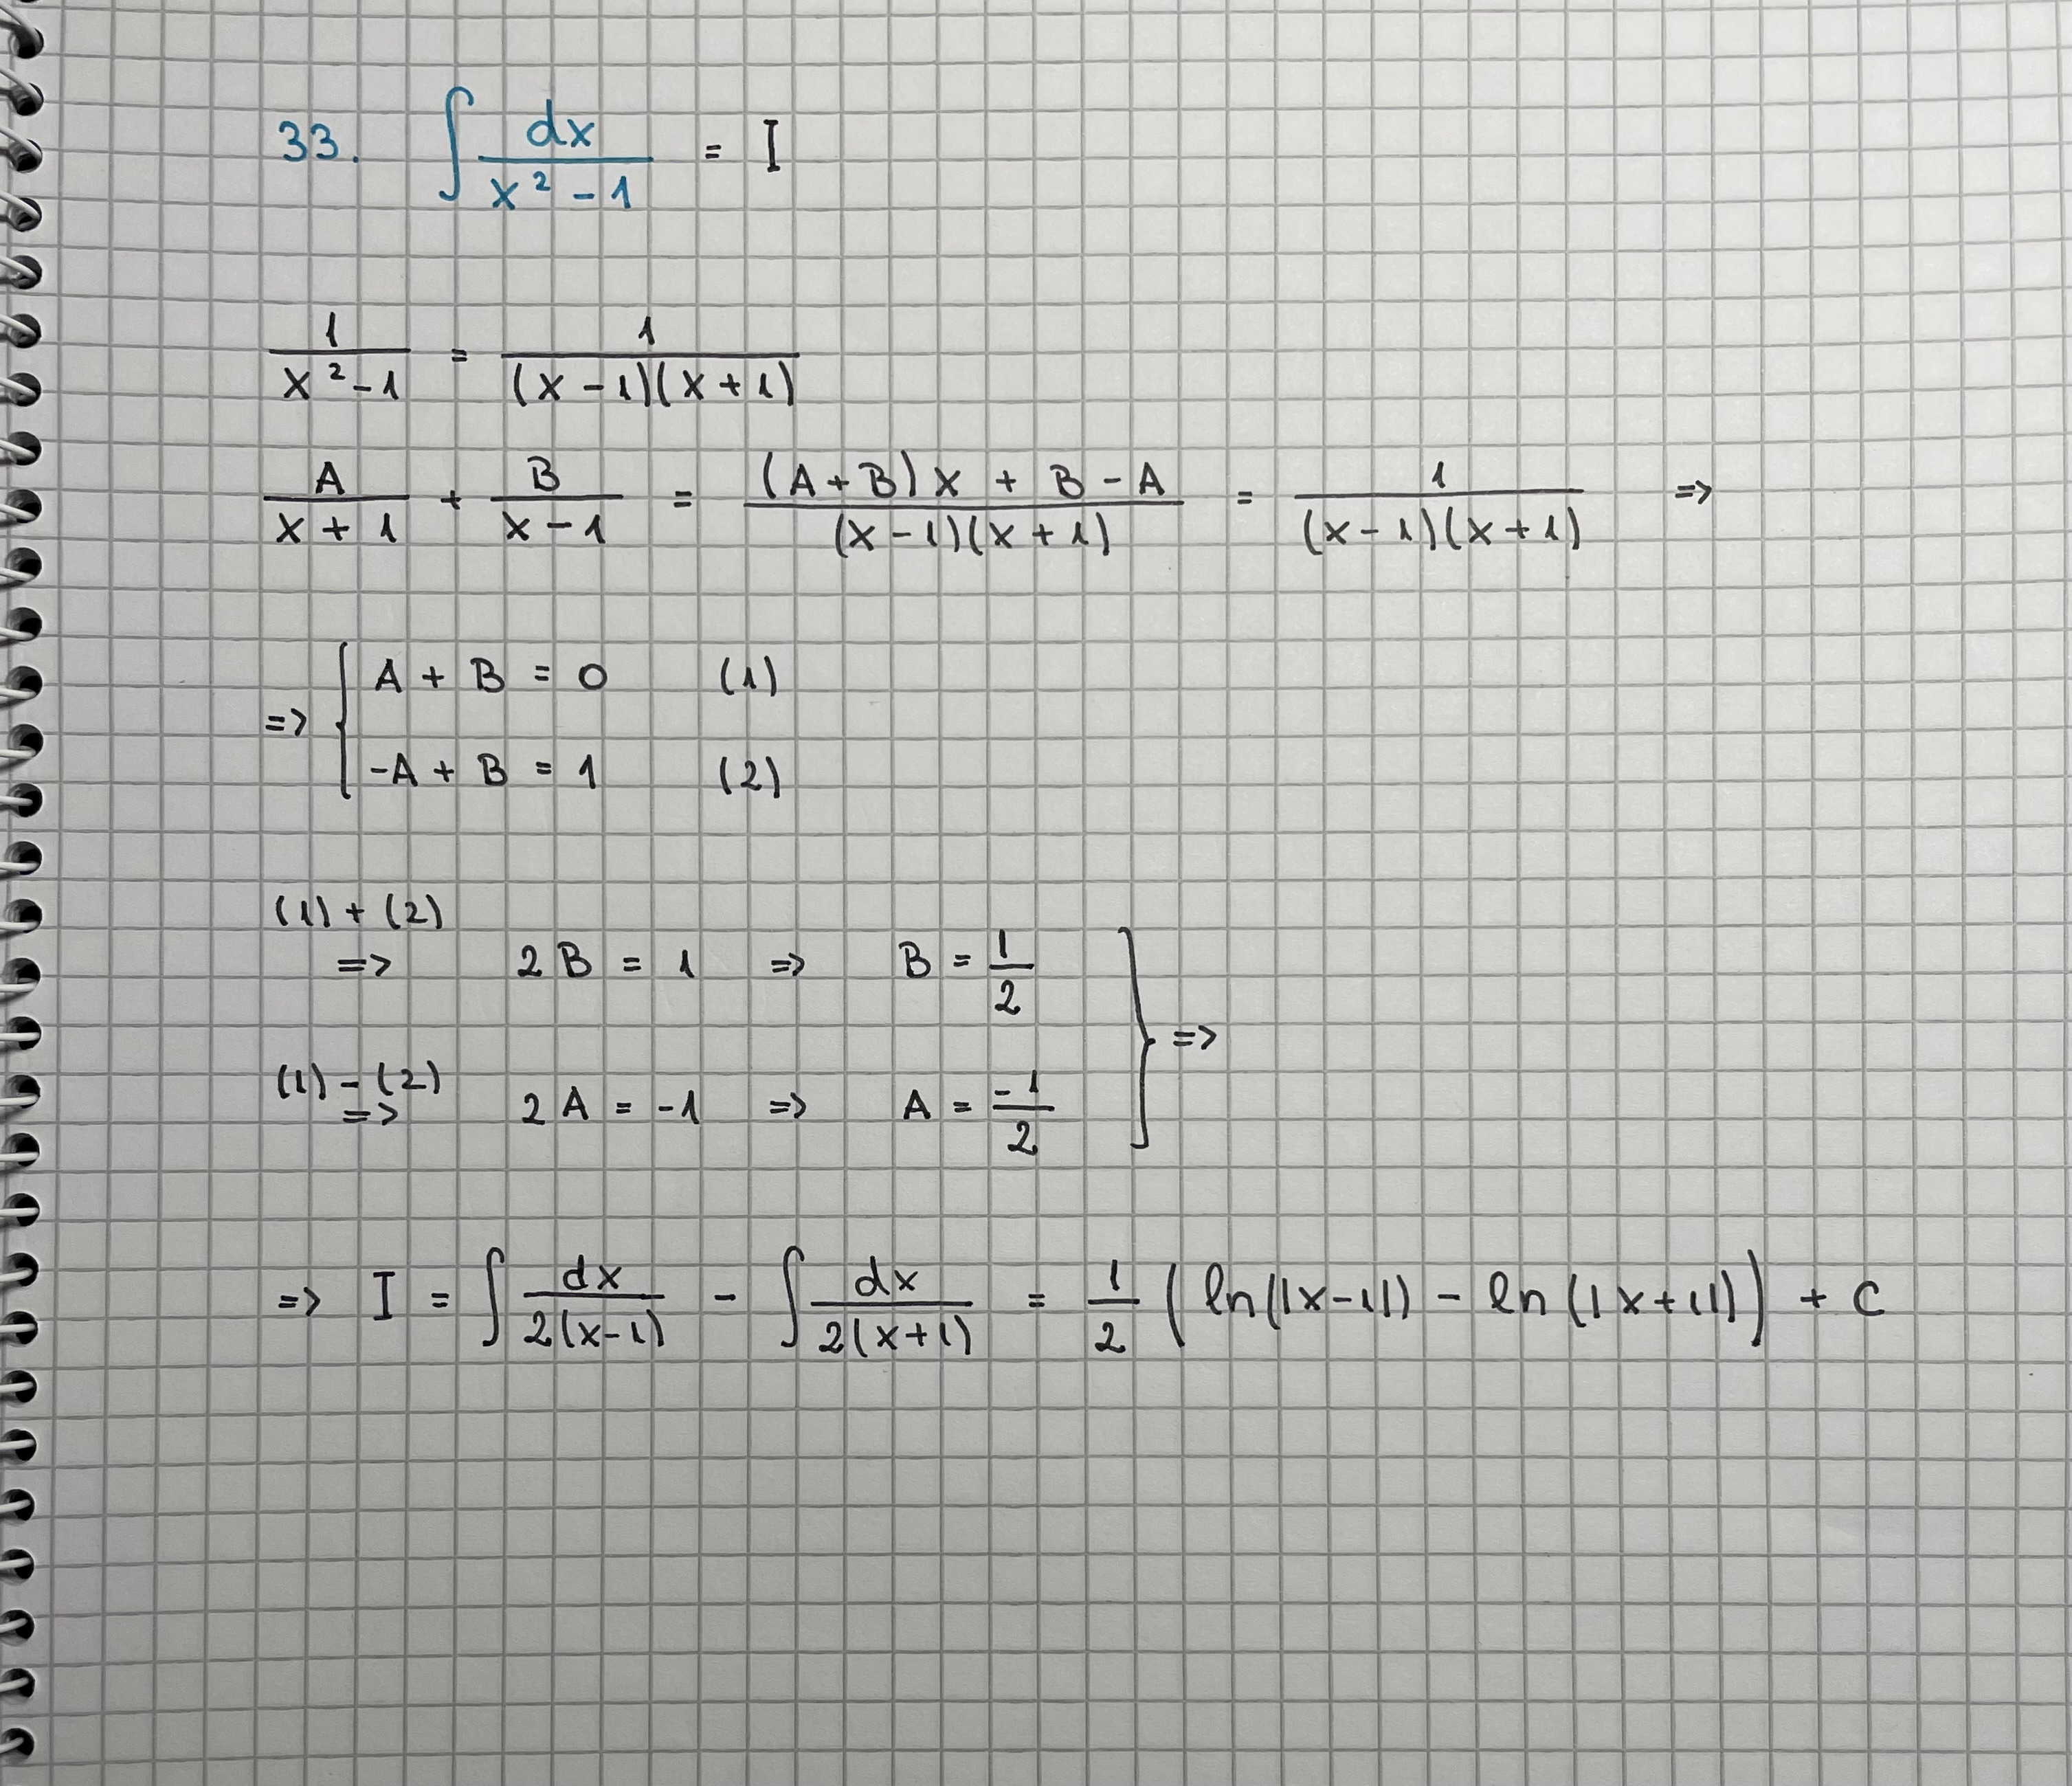 33. ∫ dx/(x² - 1) = I
1/(x² - 1) = 1/((x - 1)(x + 1))
A/(x + 1) + B/(x - 1) = ((A + B)x + B - A)/((x - 1)(x + 1)) = 1/((x - 1)(x + 1)) =>
=> { A + B = 0 (1)
-A + B = 1 (2)
(1) + (2)
=> 2B = 1 => B = 1/2
(1) - (2)
=> 2A = -1 => A = -1/2 } =>
=> I = ∫ dx/(2(x-1)) - ∫ dx/(2(x+1)) = 1/2 (ln(|x-1|) - ln(|x+1|)) + C